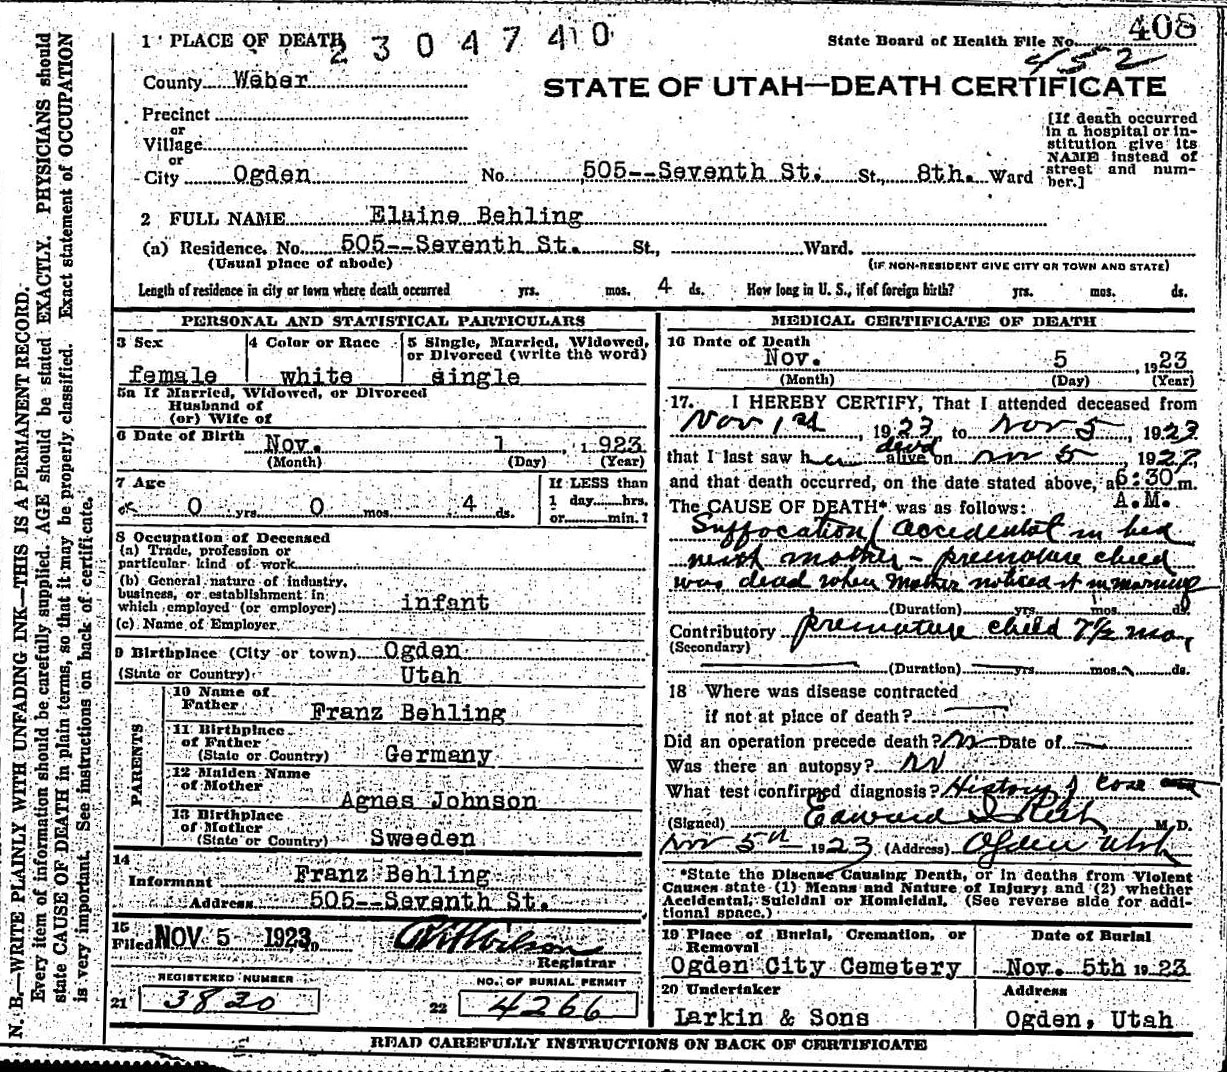 1 PLACE OF DEATH
2 3 0 4 7 4 0
State Board of Health File No. 408
452
County Weber
STATE OF UTAH—DEATH CERTIFICATE
Precinct
or
Village
or
City Ogden No. 505--Seventh St. St., 8th. Ward
[If death occurred
in a hospital or in-
stitution give its
NAME instead of
street and num-
ber.]
2 FULL NAME Elaine Behling
(a) Residence. No. 505--Seventh St. St., Ward.
(Usual place of abode) (IF NON-RESIDENT GIVE CITY OR TOWN AND STATE)
Length of residence in city or town where death occurred yrs. mos. 4 ds. How long in U. S., if of foreign birth? yrs. mos. ds.
PERSONAL AND STATISTICAL PARTICULARS
3 Sex
female
4 Color or Race
white
5 Single, Married, Widowed,
or Divorced (write the word)
single
5a If Married, Widowed, or Divorced
Husband of
(or) Wife of
6 Date of Birth Nov. 1, 1923
(Month) (Day) (Year)
7 Age
0 yrs. 0 mos. 4 ds.
If LESS than
1 day hrs.
or min.?
8 Occupation of Deceased
(a) Trade, profession or
particular kind of work
(b) General nature of industry,
business, or establishment in
which employed (or employer) infant
(c) Name of Employer
9 Birthplace (City or town) Ogden
(State or Country) Utah
PARENTS
10 Name of
Father
Franz Behling
11 Birthplace
of Father
(State or Country) Germany
12 Maiden Name
of Mother
Agnes Johnson
13 Birthplace
of Mother
(State or Country) Sweeden
14
Informant Franz Behling
Address 505--Seventh St.
15
Filed NOV 5 1923
Wilson
Registrar
REGISTERED NUMBER
21 3820
NO. OF BURIAL PERMIT
22 4266
MEDICAL CERTIFICATE OF DEATH
16 Date of Death
Nov. 5, 1923
(Month) (Day) (Year)
17. I HEREBY CERTIFY, That I attended deceased from
Nov 1st, 1923 to Nov 5, 1923
dead
that I last saw her alive on Nov 5, 1923
and that death occurred, on the date stated above, at 6:30 m.
A.M.
The CAUSE OF DEATH* was as follows:
Suffocation / accidental in bed
with mother - premature child
was dead when mother noticed it in morning
(Duration) yrs. mos. ds.
Contributory premature child 7½ mo,
(Secondary)
(Duration) yrs. mos. ds.
18 Where was disease contracted
if not at place of death?
Did an operation precede death? no Date of
Was there an autopsy? no
What test confirmed diagnosis? History of Case
(Signed) Edward I Rich M. D.
Nov 5th 1923 (Address) Ogden Utah
*State the Disease Causing Death, or in deaths from Violent
Causes state (1) Means and Nature of Injury; and (2) whether
Accidental, Suicidal or Homicidal. (See reverse side for addi-
tional space.)
19 Place of Burial, Cremation, or
Removal
Ogden City Cemetery
Date of Burial
Nov. 5th 1923
20 Undertaker
Larkin & Sons
Address
Ogden, Utah
READ CAREFULLY INSTRUCTIONS ON BACK OF CERTIFICATE
N. B.—WRITE PLAINLY WITH UNFADING INK—THIS IS A PERMANENT RECORD.
Every item of information should be carefully supplied. AGE should be stated EXACTLY. PHYSICIANS should
state CAUSE OF DEATH in plain terms, so that it may be properly classified. Exact statement of OCCUPATION
is very important. See instructions on back of certificate.